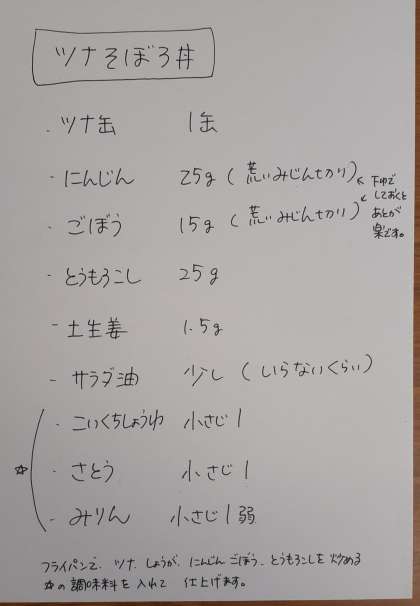 ツナそぼろ丼
・ツナ缶 1缶
・にんじん 25g (荒いみじん切り)
・ごぼう 15g (荒いみじん切り)
下ゆで
しておくと
あとが
楽です。
・とうもろこし 25g
・土生姜 1.5g
・サラダ油 少し (いらないくらい)
☆
・こいくちしょうゆ 小さじ1
・さとう 小さじ1
・みりん 小さじ1弱
フライパンで、ツナ、しょうが、にんじん、ごぼう、とうもろこしを炒める
☆の調味料を入れて 仕上げます。